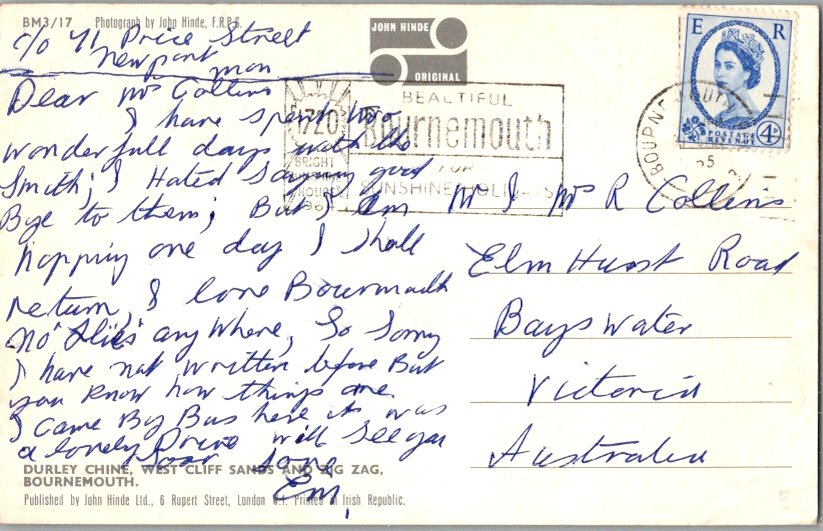 BM3/17 Photograph by John Hinde, F.R.P.S.
c/o 41 Price Street
Newport Mon
Dear Mrs Collins
I have spent two
wonderfull days with the
Smith; I Hated saying good
Bye to them; But I Am
hopping one day I shall
return, I love Bourmouth
No "flies" any where, So Sorry
I have not written before But
you know how things are.
I came By Bus here it was
a lovely Drive will see you
Soon love
Em,
DURLEY CHINE, WEST CLIFF SANDS AND ZIG ZAG,
BOURNEMOUTH.
Published by John Hinde Ltd., 6 Rupert Street, London W.1. Printed in Irish Republic.
JOHN HINDE
ORIGINAL
BEAUTIFUL
Bournemouth
FOR
SUNSHINE HOLIDAYS
1720
BRIGHT
HOURS IN
BOURNEMOUTH
E R
POSTAGE
REVENUE
4D
Mr & Mrs R Collins
Elm Hurst Road
Bayswater
Victoria
Australia